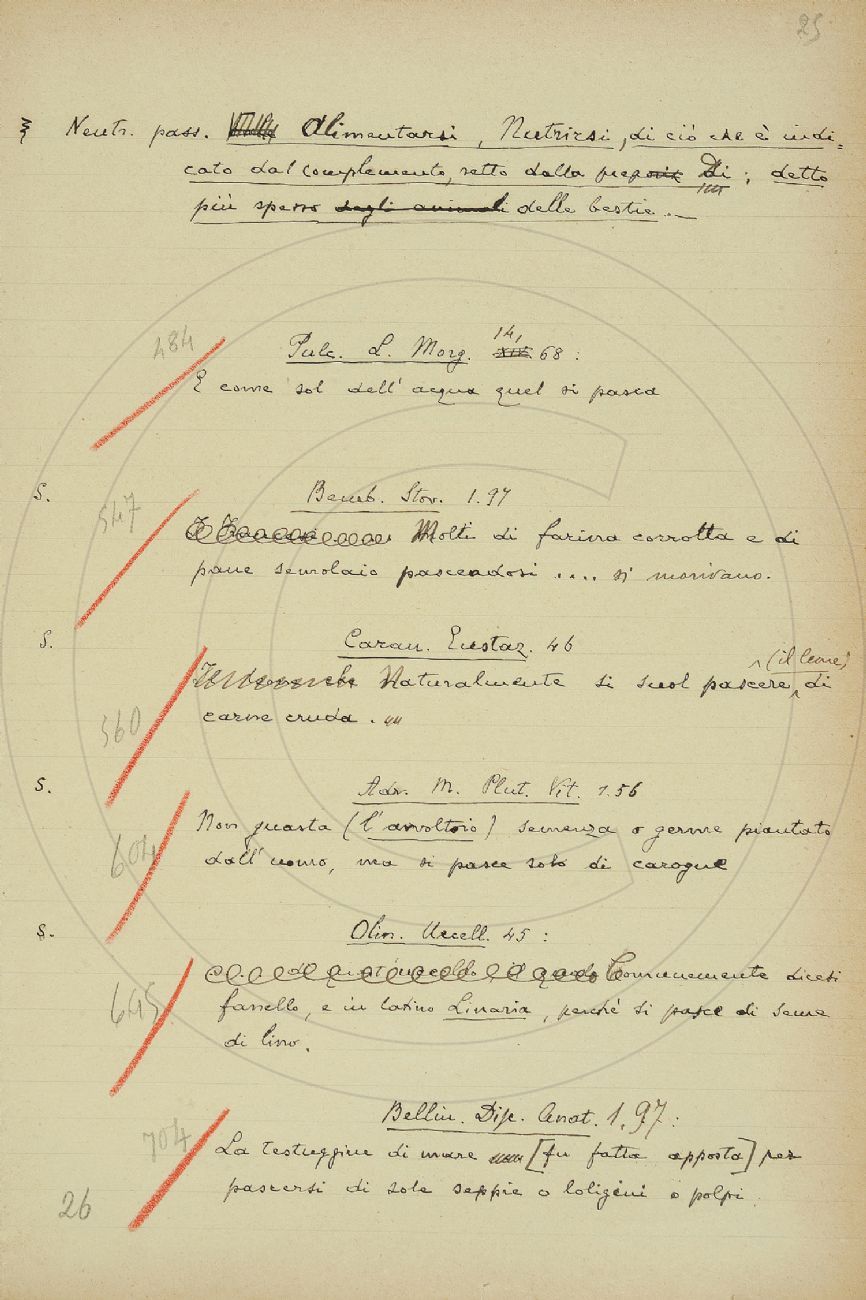 25
§ Neutr. pass. Alimentarsi, Nutrirsi, di ciò che è indi=
cato dal complemento, retto dalla prep Di; detto
più spesso degli animali delle bestie. —
484
Pulc. L. Morg. 14, XIV. 68:
E come sol dell'acqua quel si pasca
S. Bemb. Stor. 1.97
547
Molti di farina corrotta e di
pane semolaio pascendosi .... si morivano.
S. Caran. Eustaz. 46
(il leone)
Naturalmente si suol pascere, di
560
carne cruda.
S. Adr. M. Plut. Vit. 1.56
Non guasta (l'avvoltoio) semenza o germe piantato
604
dall'uomo, ma si pasce solo di carogne
S. Olin. Uccell. 45:
Comunemente dicesi
645
fanello, e in latino Linaria, perchè si pasce di seme
di lino.
Bellin. Disc. Anat. 1.97:
704
La testuggine di mare [fu fatta apposta] per
pascersi di sole seppie o loligini o polpi.
26